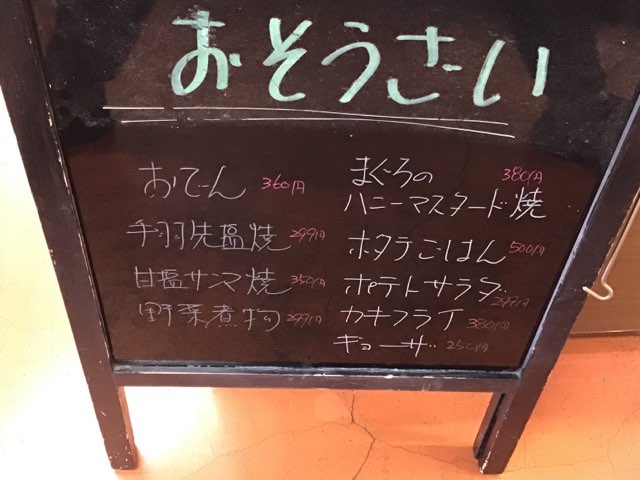 おそうざい
おでーん 360円
手羽先塩焼 299円
甘塩サンマ焼 350円
野菜煮物 299円
まぐろの 380円
ハニーマスタード焼
ホタテごはん 500円
ポテトサラダ 299円
カキフライ 380円
ギョーザ 250円